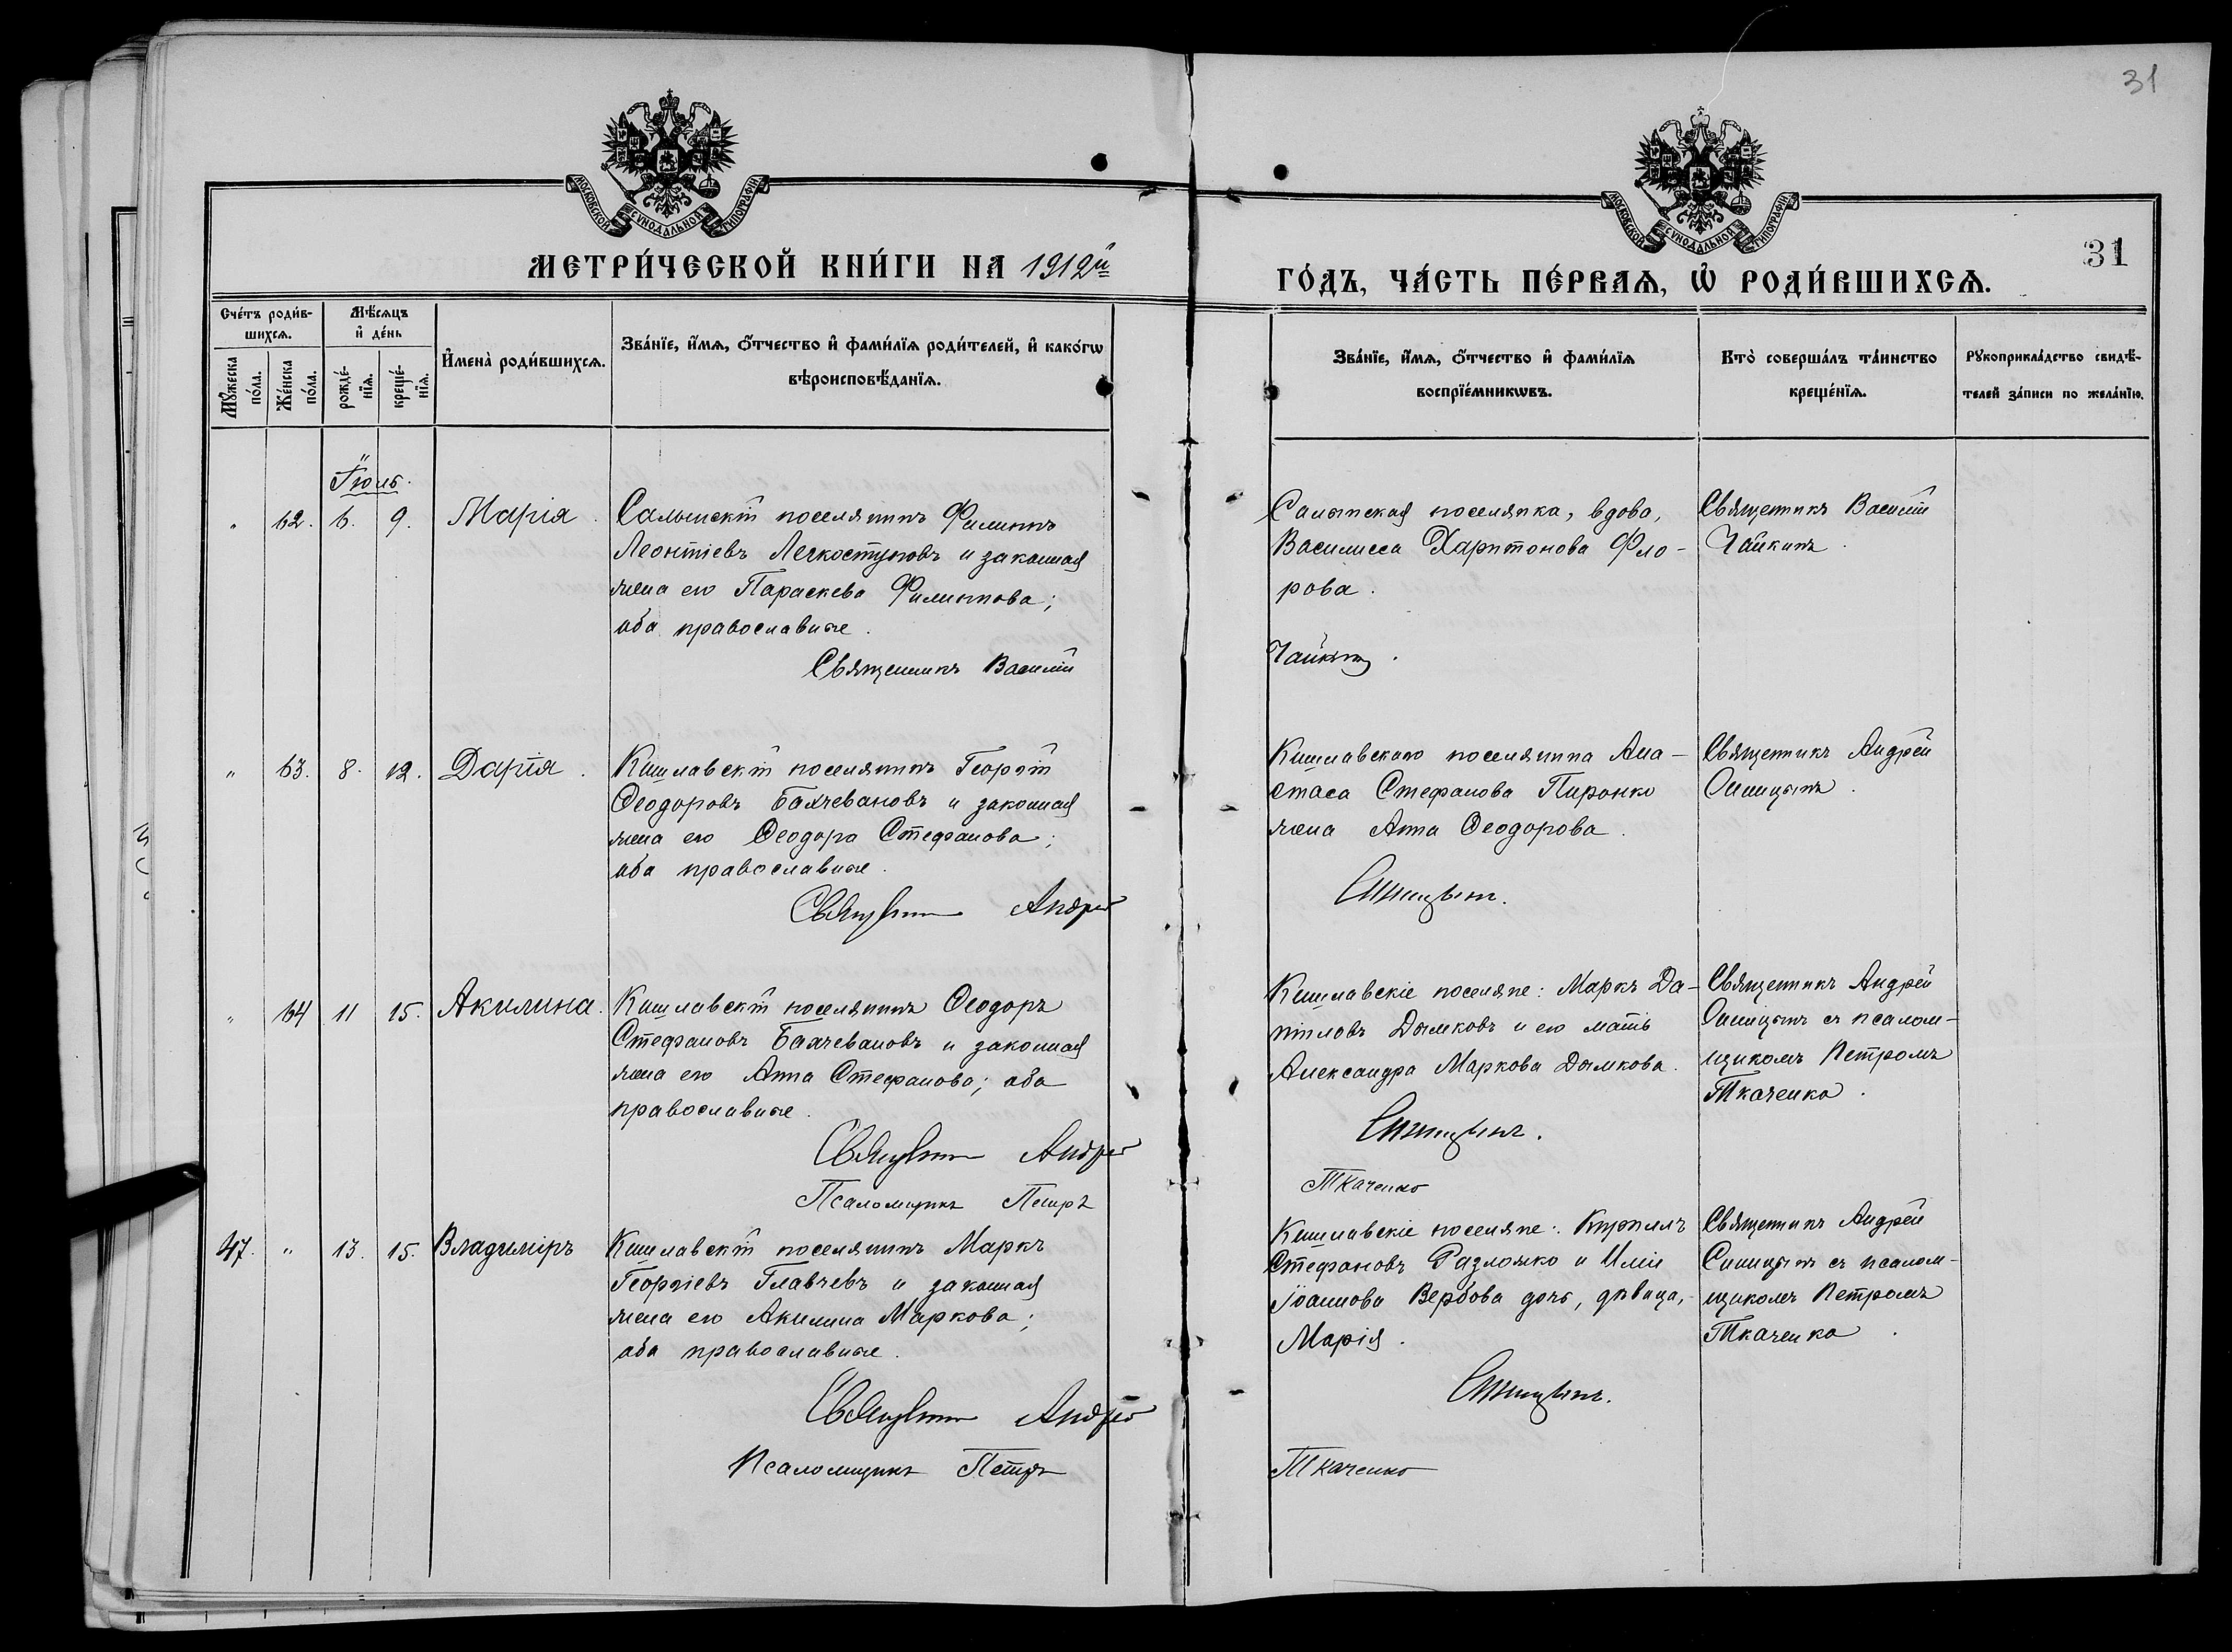 31
МОСКОВСКОЙ СѴНОДАЛЬНОЙ ТИПОГРАФІИ
МОСКОВСКОЙ СѴНОДАЛЬНОЙ ТИПОГРАФІИ
31
МЕТРИ́ЧЕСКОЙ КНИ́ГИ НА 1912й
ГО́ДЪ, ЧА́СТЬ ПЕ́РВАѦ, Ѡ҆ РОДИ́ВШИХСѦ.
Сче́тъ роди́в-
шихсѧ.
Мѣ́сѧцъ
и҆ де́нь
Мꙋ́жеска
по́ла.
Же́нска
по́ла.
рожде́-
нїѧ.
креще́-
нїѧ.
И҆мена̀ роди́вшихсѧ.
Зва́нїе, и҆́мѧ, ѻ҆́тчество и҆ фами́лїѧ роди́телей, и҆ како́гѡ
вѣроисповѣ́данїѧ.
Зва́нїе, и҆́мѧ, ѻ҆́тчество и҆ фами́лїѧ
воспрїе́мникѡвъ.
Кто̀ соверша́лъ та́инство
креще́нїѧ.
Рꙋкоприкла́дство свидѣ́-
телей за́писи по жела́нїю.
Іюль.
" 62. 6. 9. Марія.
Салынскій поселянинъ Филиппъ
Леонтіевъ Легкоступовъ и законная
жена его Параскева Филиппова;
оба православные.
Священникъ Василій
Салынская поселянка, вдова,
Василисса Харитонова Фло-
рова.
Чайкинъ.
Священникъ Василій
Чайкинъ.
" 63. 8. 12. Дарія.
Кишлавскій поселянинъ Георгій
Ѳеодоровъ Бахчевановъ и законная
жена его Ѳеодора Стефанова;
оба православные.
Священникъ Андрей
Кишлавскаго поселянина Ана-
стаса Стефанова Пиронко
жена Анна Ѳеодорова.
Синицынъ.
Священникъ Андрей
Синицынъ.
" 64 11 15. Акилина.
Кишлавскій поселянинъ Ѳеодоръ
Стефановъ Бахчевановъ и законная
жена его Анна Стефанова; оба
православные.
Священникъ Андрей
Псаломщикъ Петръ
Кишлавскіе поселяне: Маркъ Да-
ніиловъ Дымковъ и его мать
Александра Маркова Дымкова.
Синицынъ.
Ткаченко
Священникъ Андрей
Синицынъ съ псалом-
щикомъ Петромъ
Ткаченко.
47. " 13. 15. Владиміръ
Кишлавскій поселянинъ Маркъ
Георгіевъ Главчевъ и законная
жена его Акилина Маркова;
оба православные.
Священникъ Андрей
Псаломщикъ Петръ
Кишлавскіе поселяне: Кириллъ
Стефановъ Разложко и Иліи
Іоаннова Вербова дочь, дѣвица,
Марія.
Синицынъ.
Ткаченко
Священникъ Андрей
Синицынъ съ псалом-
щикомъ Петромъ
Ткаченко.